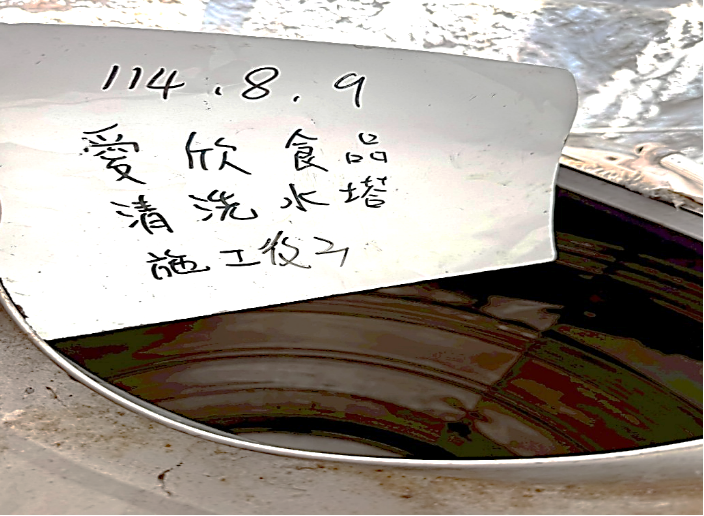 114.8.9
愛欣食品
清洗水塔
施工後2